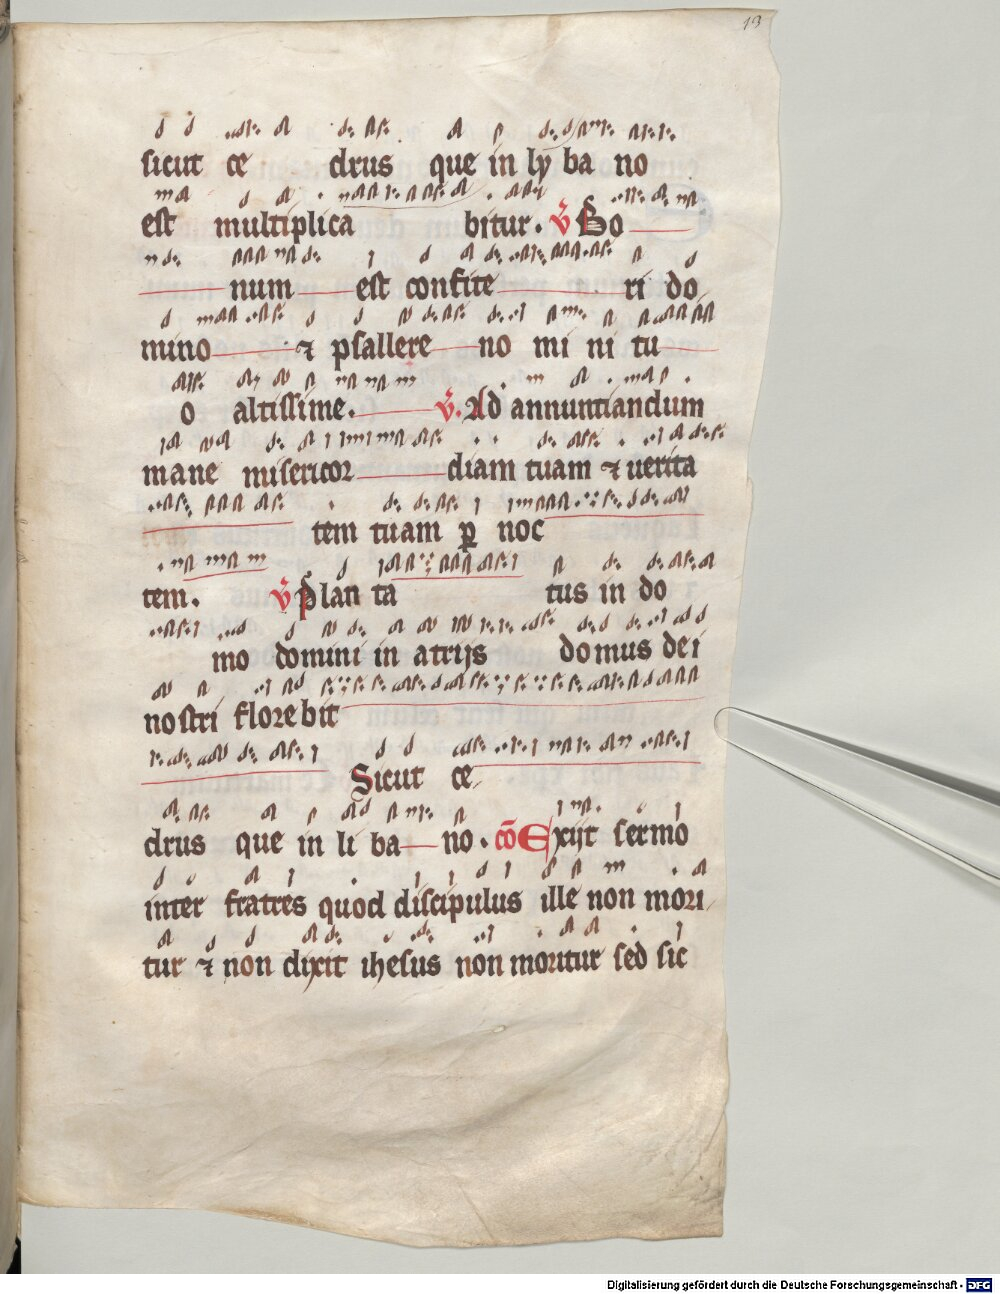 13
sicut ce drus que in ly ba no
est multiplica bitur. v̄ Bo
num est confite ri do
mino ⁊ psallere no mi ni tu
o altissime. v̄. Ad annuntiandum
mane misericor diam tuam ⁊ uerita
tem tuam ꝑ noc
tem. v̄ Plan ta tus in do
mo domini in atrijs domus dei
nostri florebit
Sicut ce
drus que in li ba no. cō Exijt sermo
inter fratres quod discipulus ille non mori
tur ⁊ non dixit ihesus non moritur sed sic
Digitalisierung gefördert durch die Deutsche Forschungsgemeinschaft - DFG